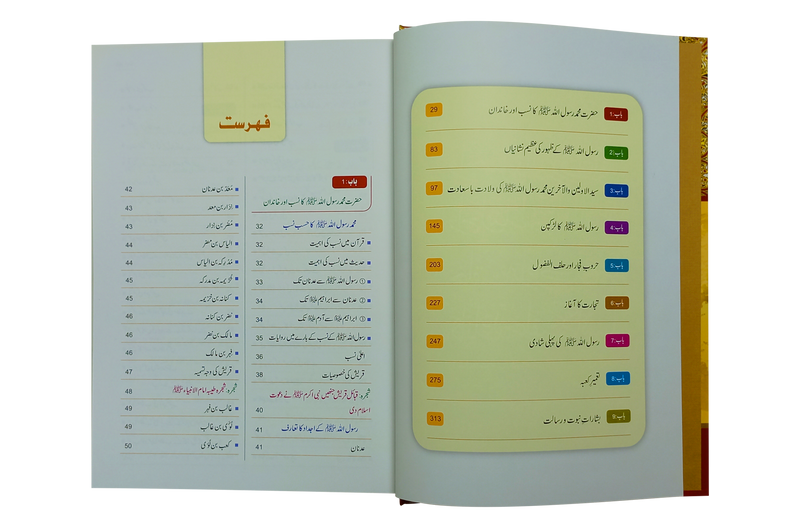 باب:1 حضرت محمد رسول اللہ ﷺ کا نسب اور خاندان 29
باب:2 رسول اللہ ﷺ کے ظہور کی عظیم نشانیاں 83
باب:3 سید الاولین والآخرین محمد رسول اللہ ﷺ کی ولادت باسعادت 97
باب:4 رسول اللہ ﷺ کا لڑکپن 145
باب:5 حروب فجار اور حلف الفضول 203
باب:6 تجارت کا آغاز 227
باب:7 رسول اللہ ﷺ کی پہلی شادی 247
باب:8 تعمیر کعبہ 275
باب:9 بشارات نبوت و رسالت 313
فہرست
باب:1
حضرت محمد رسول اللہ ﷺ کا نسب اور خاندان
محمد رسول اللہ ﷺ کا حسب نسب 32
قرآن میں نسب کی اہمیت 32
حدیث میں نسب کی اہمیت 32
① رسول اللہ ﷺ سے عدنان تک 33
② عدنان سے ابراہیم علیہ السلام تک 34
③ ابراہیم علیہ السلام سے آدم علیہ السلام تک 34
رسول اللہ ﷺ کے نسب کے بارے میں روایات 35
اعلیٰ نسب 36
قریش کی خصوصیات 38
شجرہ: قبائل قریش جنھیں نبی اکرم ﷺ نے دعوت
اسلام دی 40
رسول اللہ ﷺ کے اجداد کا تعارف 41
عدنان 41
مَعَدّ بن عدنان 42
نزار بن معد 43
مُضَر بن نزار 43
الیاس بن مضر 44
مُدرِکہ بن الیاس 44
خُزَیمہ بن مدرکہ 45
کنانہ بن خُزیمہ 45
نضر بن کنانہ 46
مالک بن نضر 46
فہر بن مالک 46
قریش کی وجہ تسمیہ 47
شجرہ: شجرہ طیبہ امام الانبیاء ﷺ 48
غالب بن فہر 49
لُؤی بن غالب 49
کعب بن لُؤی 50